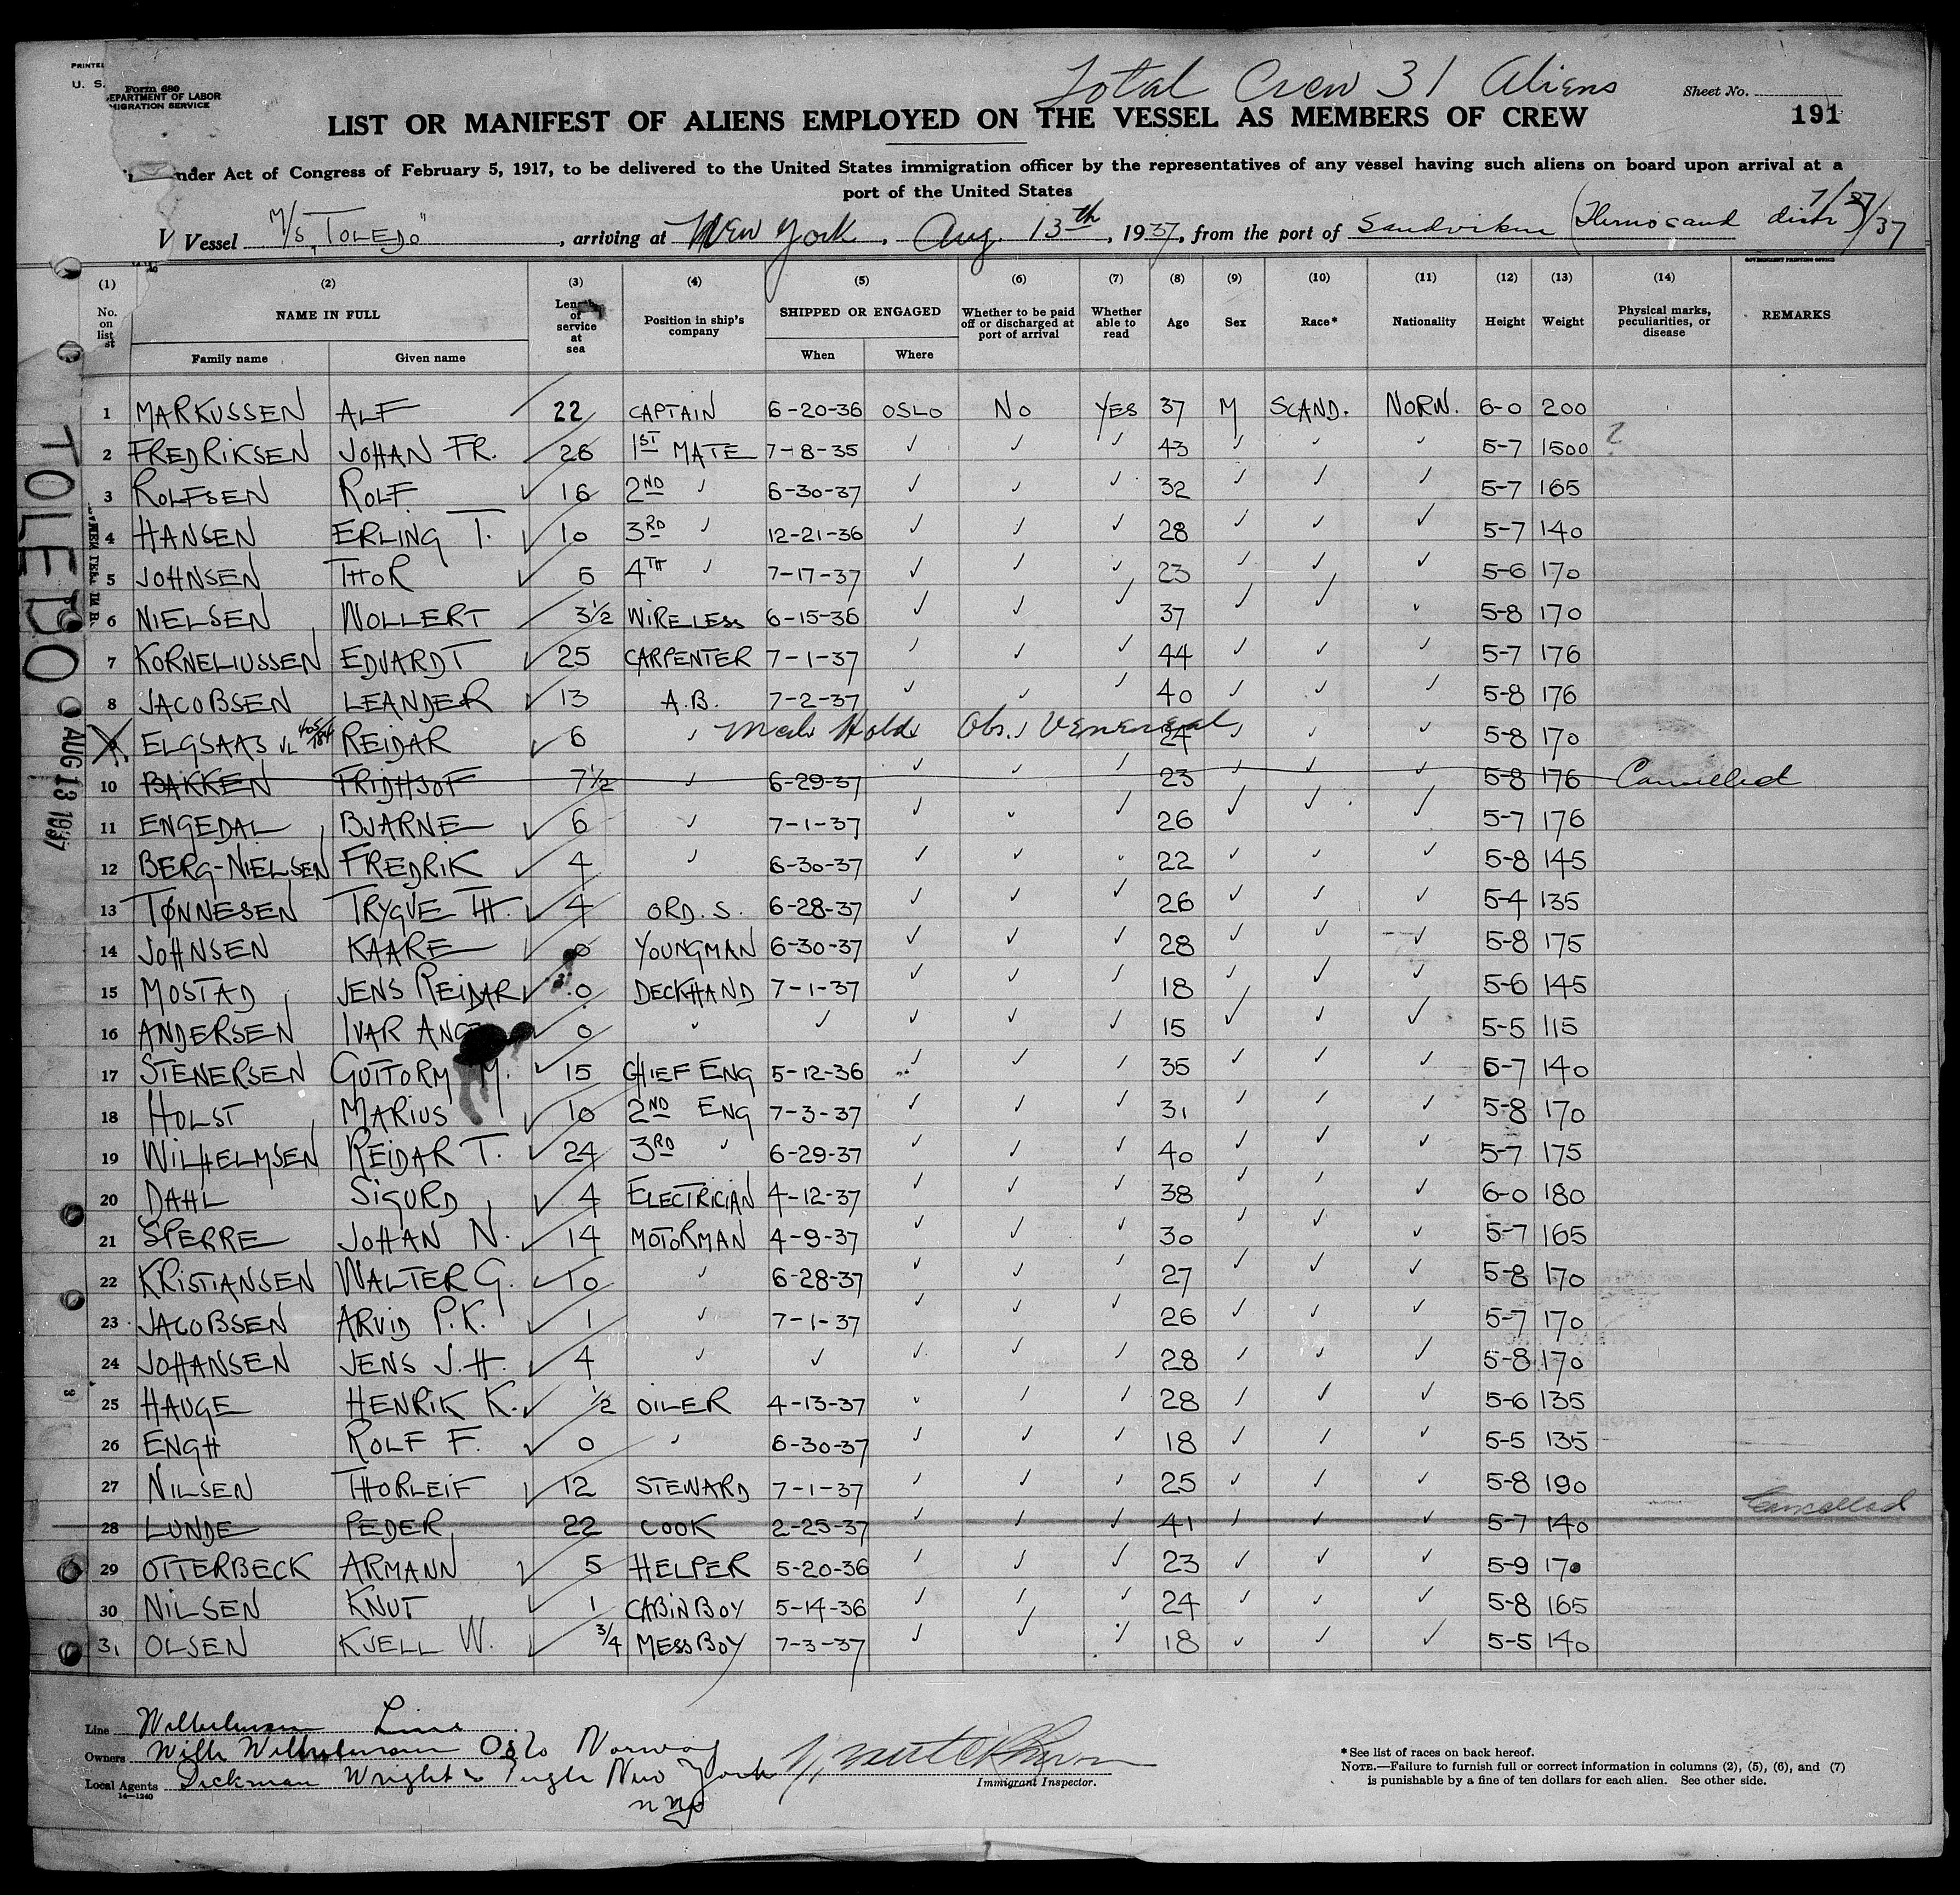 Total Crew 31 Aliens
PRINTED
U. S.
Form 680
DEPARTMENT OF LABOR
MIGRATION SERVICE
Sheet No.
191
LIST OR MANIFEST OF ALIENS EMPLOYED ON THE VESSEL AS MEMBERS OF CREW
nder Act of Congress of February 5, 1917, to be delivered to the United States immigration officer by the representatives of any vessel having such aliens on board upon arrival at a
port of the United States
Vessel M/S "TOLEDO", arriving at New York, Aug. 13th, 1937, from the port of Sandviken
(1) (2) (3) (4) (5) (6) (7) (8) (9) (10) (11) (12) (13) (14)
GOVERNMENT PRINTING OFFICE
No. on list NAME IN FULL Length of service at sea Position in ship's company SHIPPED OR ENGAGED Whether to be paid off or discharged at port of arrival Whether able to read Age Sex Race* Nationality Height Weight Physical marks, peculiarities, or disease REMARKS
Family name Given name When Where
1 MARKUSSEN ALF 22 CAPTAIN 6-20-36 OSLO No YES 37 M SCAND. NORW. 6-0 200
2 FREDRIKSEN JOHAN FR. 26 1ST MATE 7-8-35 ✓ ✓ ✓ 43 ✓ ✓ ✓ 5-7 1500 ?
3 ROLFSEN ROLF ✓ 16 2ND ✓ 6-30-37 ✓ ✓ ✓ 32 ✓ ✓ ✓ 5-7 165
4 HANSEN ERLING T. ✓ 10 3RD ✓ 12-21-36 ✓ ✓ ✓ 28 ✓ ✓ ✓ 5-7 140
5 JOHNSEN THOR ✓ 5 4TH ✓ 7-17-37 ✓ ✓ ✓ 23 ✓ ✓ ✓ 5-6 170
6 NIELSEN NOLLERT 3½ WIRELESS 6-15-36 ✓ ✓ ✓ 37 ✓ ✓ ✓ 5-8 170
7 KORNELIUSSEN EDVARDT ✓ 25 CARPENTER 7-1-37 ✓ ✓ ✓ 44 ✓ ✓ ✓ 5-7 176
8 JACOBSEN LEANDER ✓ 13 A.B. 7-2-37 ✓ ✓ ✓ 40 ✓ ✓ ✓ 5-8 176
ELGSAAS REIDAR ✓ 6 ✓ Med. Hold Obs. Venereal 24 ✓ ✓ ✓ 5-8 170
10 BAKKEN FRIDHJOF 7½ ✓ 6-29-37 ✓ ✓ ✓ 23 ✓ ✓ ✓ 5-8 176 Cancelled
11 ENGEDAL BJARNE ✓ 6 ✓ 7-1-37 ✓ ✓ ✓ 26 ✓ ✓ ✓ 5-7 176
12 BERG-NIELSEN FREDRIK ✓ 4 ✓ 6-30-37 ✓ ✓ ✓ 22 ✓ ✓ ✓ 5-8 145
13 TØNNESEN TRYGVE TH. ✓ 4 ORD. S. 6-28-37 ✓ ✓ ✓ 26 ✓ ✓ ✓ 5-4 135
14 JOHNSEN KAARE ✓ 0 YOUNGMAN 6-30-37 ✓ ✓ ✓ 28 ✓ ✓ ✓ 5-8 175
15 MOSTAD JENS REIDAR ✓ 0 DECKHAND 7-1-37 ✓ ✓ ✓ 18 ✓ ✓ ✓ 5-6 145
16 ANDERSEN IVAR ✓ 0 ✓ ✓ ✓ ✓ ✓ 15 ✓ ✓ ✓ 5-5 115
17 STENERSEN GUTTORM M. ✓ 15 CHIEF ENG 5-12-36 ✓ ✓ ✓ 35 ✓ ✓ ✓ 5-7 140
18 HOLST MARIUS ✓ 10 2ND ENG 7-3-37 ✓ ✓ ✓ 31 ✓ ✓ ✓ 5-8 170
19 WILHELMSEN REIDAR T. ✓ 24 3RD ✓ 6-29-37 ✓ ✓ ✓ 40 ✓ ✓ ✓ 5-7 175
20 DAHL SIGURD ✓ 4 ELECTRICIAN 4-12-37 ✓ ✓ ✓ 38 ✓ ✓ ✓ 6-0 180
21 SPERRE JOHAN N. ✓ 14 MOTORMAN 4-9-37 ✓ ✓ ✓ 30 ✓ ✓ ✓ 5-7 165
22 KRISTIANSEN WALTER G. ✓ 10 ✓ 6-28-37 ✓ ✓ ✓ 27 ✓ ✓ ✓ 5-8 170
23 JACOBSEN ARVID P.K. ✓ 1 ✓ 7-1-37 ✓ ✓ ✓ 26 ✓ ✓ ✓ 5-7 170
24 JOHANSEN JENS J.H. ✓ 4 ✓ ✓ ✓ ✓ ✓ 28 ✓ ✓ ✓ 5-8 170
25 HAUGE HENRIK K. ✓ ½ OILER 4-13-37 ✓ ✓ ✓ 28 ✓ ✓ ✓ 5-6 135
26 ENGH ROLF F. ✓ 0 ✓ 6-30-37 ✓ ✓ ✓ 18 ✓ ✓ ✓ 5-5 135
27 NILSEN THORLEIF ✓ 12 STEWARD 7-1-37 ✓ ✓ ✓ 25 ✓ ✓ ✓ 5-8 190
28 LUNDE PEDER 22 COOK 2-25-37 ✓ ✓ ✓ 41 ✓ ✓ ✓ 5-7 140 Cancelled
29 OTTERBECK ARMANN ✓ 5 HELPER 5-20-36 ✓ ✓ ✓ 23 ✓ ✓ ✓ 5-9 170
30 NILSEN KNUT ✓ 1 CABINBOY 5-14-36 ✓ ✓ ✓ 24 ✓ ✓ ✓ 5-8 165
31 OLSEN KJELL W. ✓ ¾ MESSBOY 7-3-37 ✓ ✓ ✓ 18 ✓ ✓ ✓ 5-5 140
TOLEDO
AUG 13 1937
Line Wilhelmsen Line
Owners Wilh Wilhelmsen Oslo Norway
Local Agents Dickman Wright & Pugh New York
Immigrant Inspector.
14—1240
* See list of races on back hereof.
NOTE.—Failure to furnish full or correct information in columns (2), (5), (6), and (7)
is punishable by a fine of ten dollars for each alien. See other side.